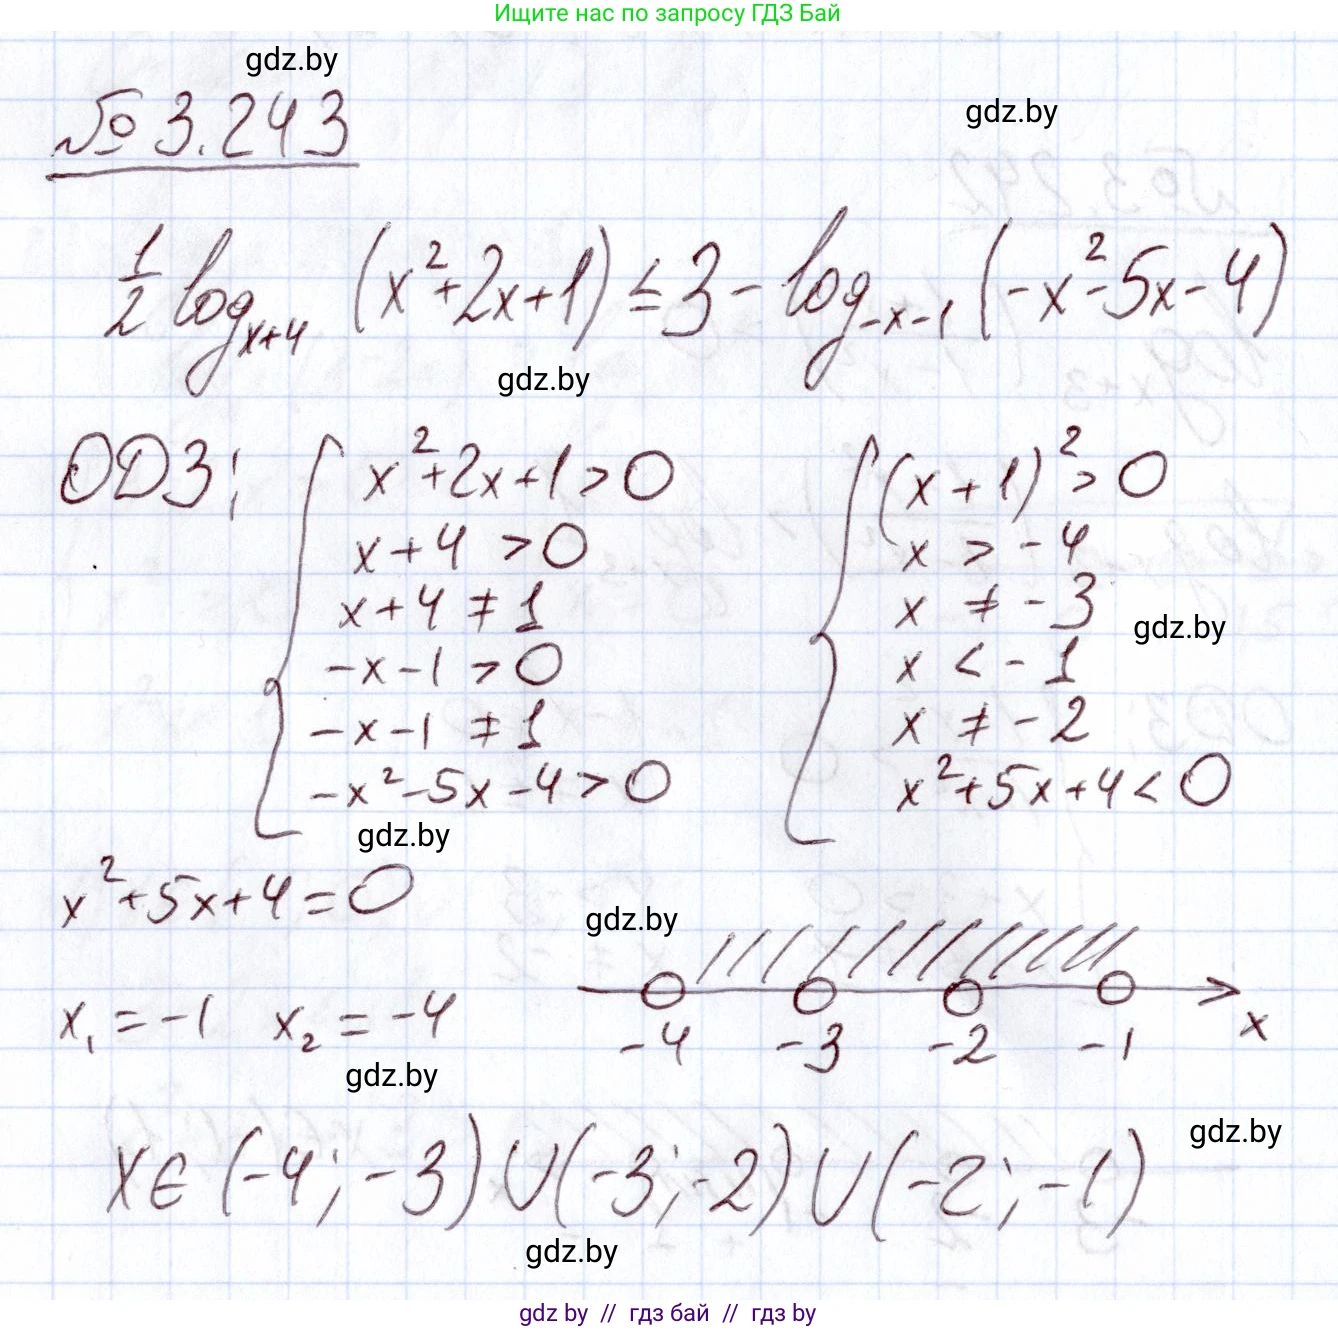 Ищите нас по запросу ГДЗ Бай
gdz.by
№ 3.243
gdz.by
½ log_{x+4} (x²+2x+1) ≤ 3 - log_{-x-1} (-x²-5x-4)
gdz.by
ОДЗ:
{ x²+2x+1 > 0
x+4 > 0
x+4 ≠ 1
-x-1 > 0
-x-1 ≠ 1
-x²-5x-4 > 0
{ (x+1)² > 0
x > -4
x ≠ -3
x < -1
x ≠ -2
x²+5x+4 < 0
gdz.by
gdz.by
x²+5x+4=0
gdz.by
x₁ = -1 x₂ = -4
-4 -3 -2 -1 x
gdz.by
gdz.by
x∈ (-4; -3) ∪ (-3; -2) ∪ (-2; -1)
gdz.by
gdz by // гдз бай // гдз by